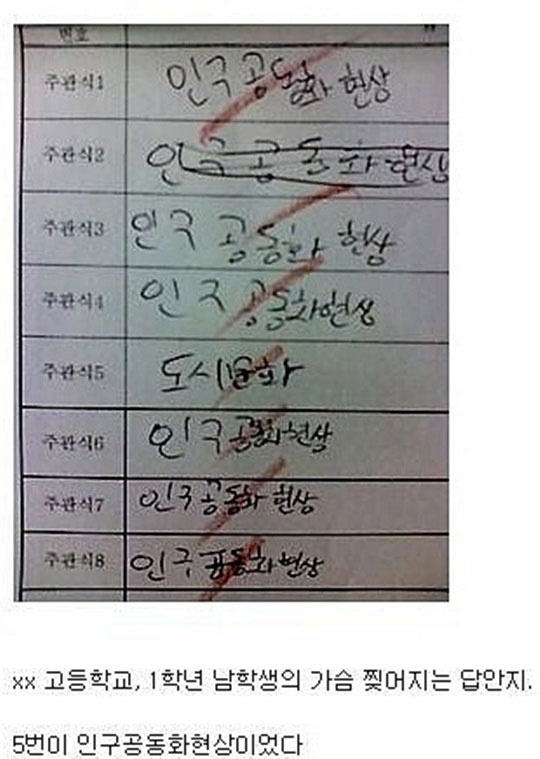 번호
주관식1 인구공동화 현상
주관식2 인구공동화현상
주관식3 인구공동화 현상
주관식4 인구공동화현상
주관식5 도시문화
주관식6 인구공동화현상
주관식7 인구공동화 현상
주관식8 인구공동화현상
xx 고등학교, 1학년 남학생의 가슴 찢어지는 답안지.
5번이 인구공동화현상이었다